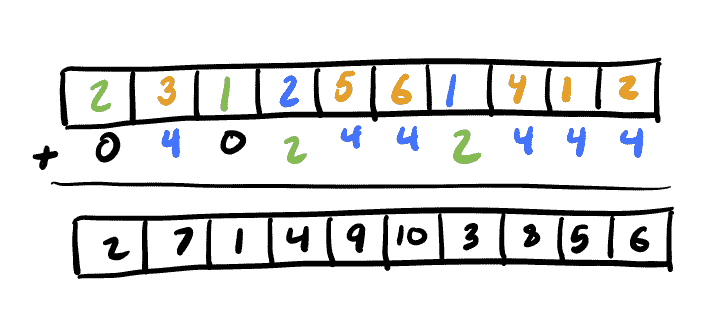 2 3 1 2 5 6 1 4 1 2
+ 0 4 0 2 4 4 2 4 4 4
2 7 1 4 9 10 3 8 5 6